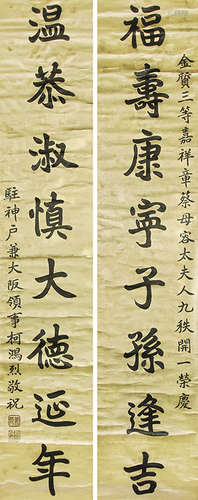 金質三等嘉祥章蔡母容太夫人九秩開一榮慶
福壽康寧子孫逢吉
温恭淑慎大德延年
駐神户兼大阪領事柯鴻烈敬祝